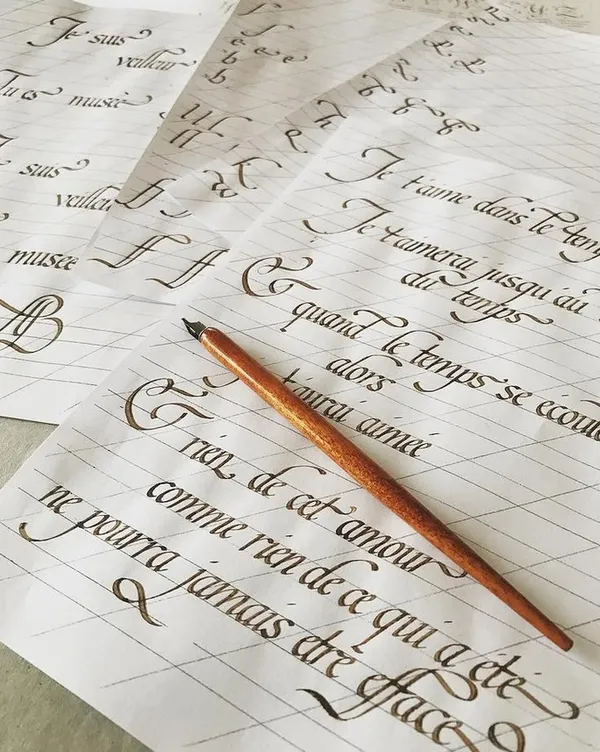 Je suis
veilleur
Tu es musée
suis
veilleur
musée
AB
Je t'aime dans le temp
Je t'aimerai jusqu'au
du temps
Et
quand le temps se écoul
alors
t'aurai aimée
Et
rien de cet amour
comme rien de ce qui a été
ne pourra jamais etre efface